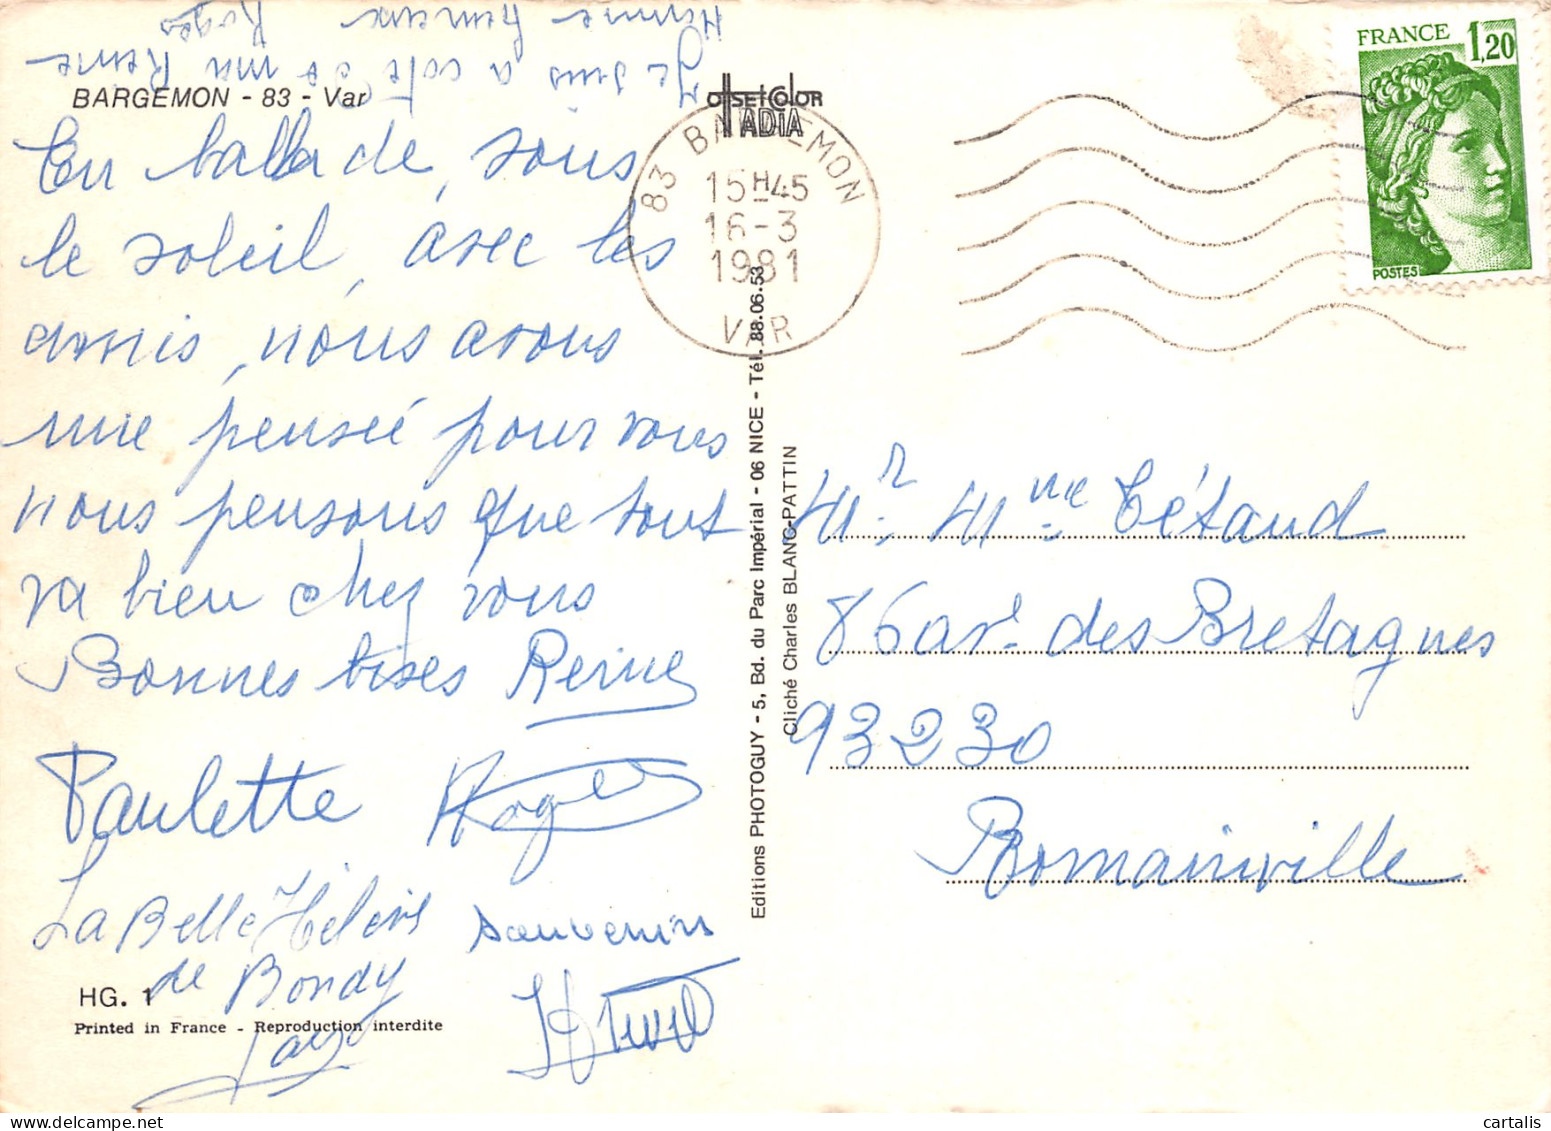 Je suis a coté de ma Reine
Homme heureux Roger
BARGEMON - 83 - Var
En ballade, sous
le soleil, avec les
amis, nous avons
une pensée pour vous
nous pensons que tout
va bien chez vous
Bonnes bises Reine
Paulette Roger
La Belle Hélène souvenirs
de Bondy
HG. 1
Printed in France - Reproduction interdite
OFFSET COLOR
TADIA
83 BARGEMON
15H45
16-3
1981
VAR
Editions PHOTOGUY - 5, Bd. du Parc Impérial - 06 NICE - Tél. 88.06.53
Cliché Charles BLANC-PATTIN
FRANCE 1,20
POSTES
Mr. Mme Tétaud
86 av. des Bretagnes
93230
Romainville
cartalis